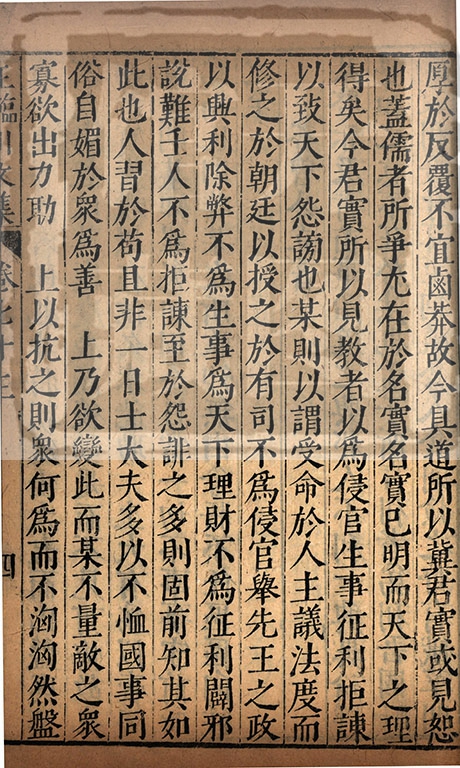 厚於反覆不宜鹵莽故今具道所以冀君實或見恕
也蓋儒者所爭尤在於名實名實已明而天下之理
得矣今君實所以見教者以為侵官生事征利拒諫
以致天下怨謗也某則以謂受命於人主議法度而
修之於朝廷以授之於有司不為侵官舉先王之政
以興利除弊不為生事為天下理財不為征利闢邪
說難壬人不為拒諫至於怨誹之多則固前知其如
此也人習於苟且非一日士大夫多以不恤國事同
俗自媚於衆為善　上乃欲變此而某不量敵之衆
寡欲出力助　上以抗之則衆何為而不洶洶然盤
王臨川文集　卷七十三　四